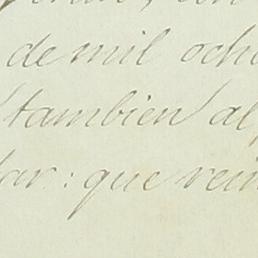 de mil och
tambien al
ar: que rein